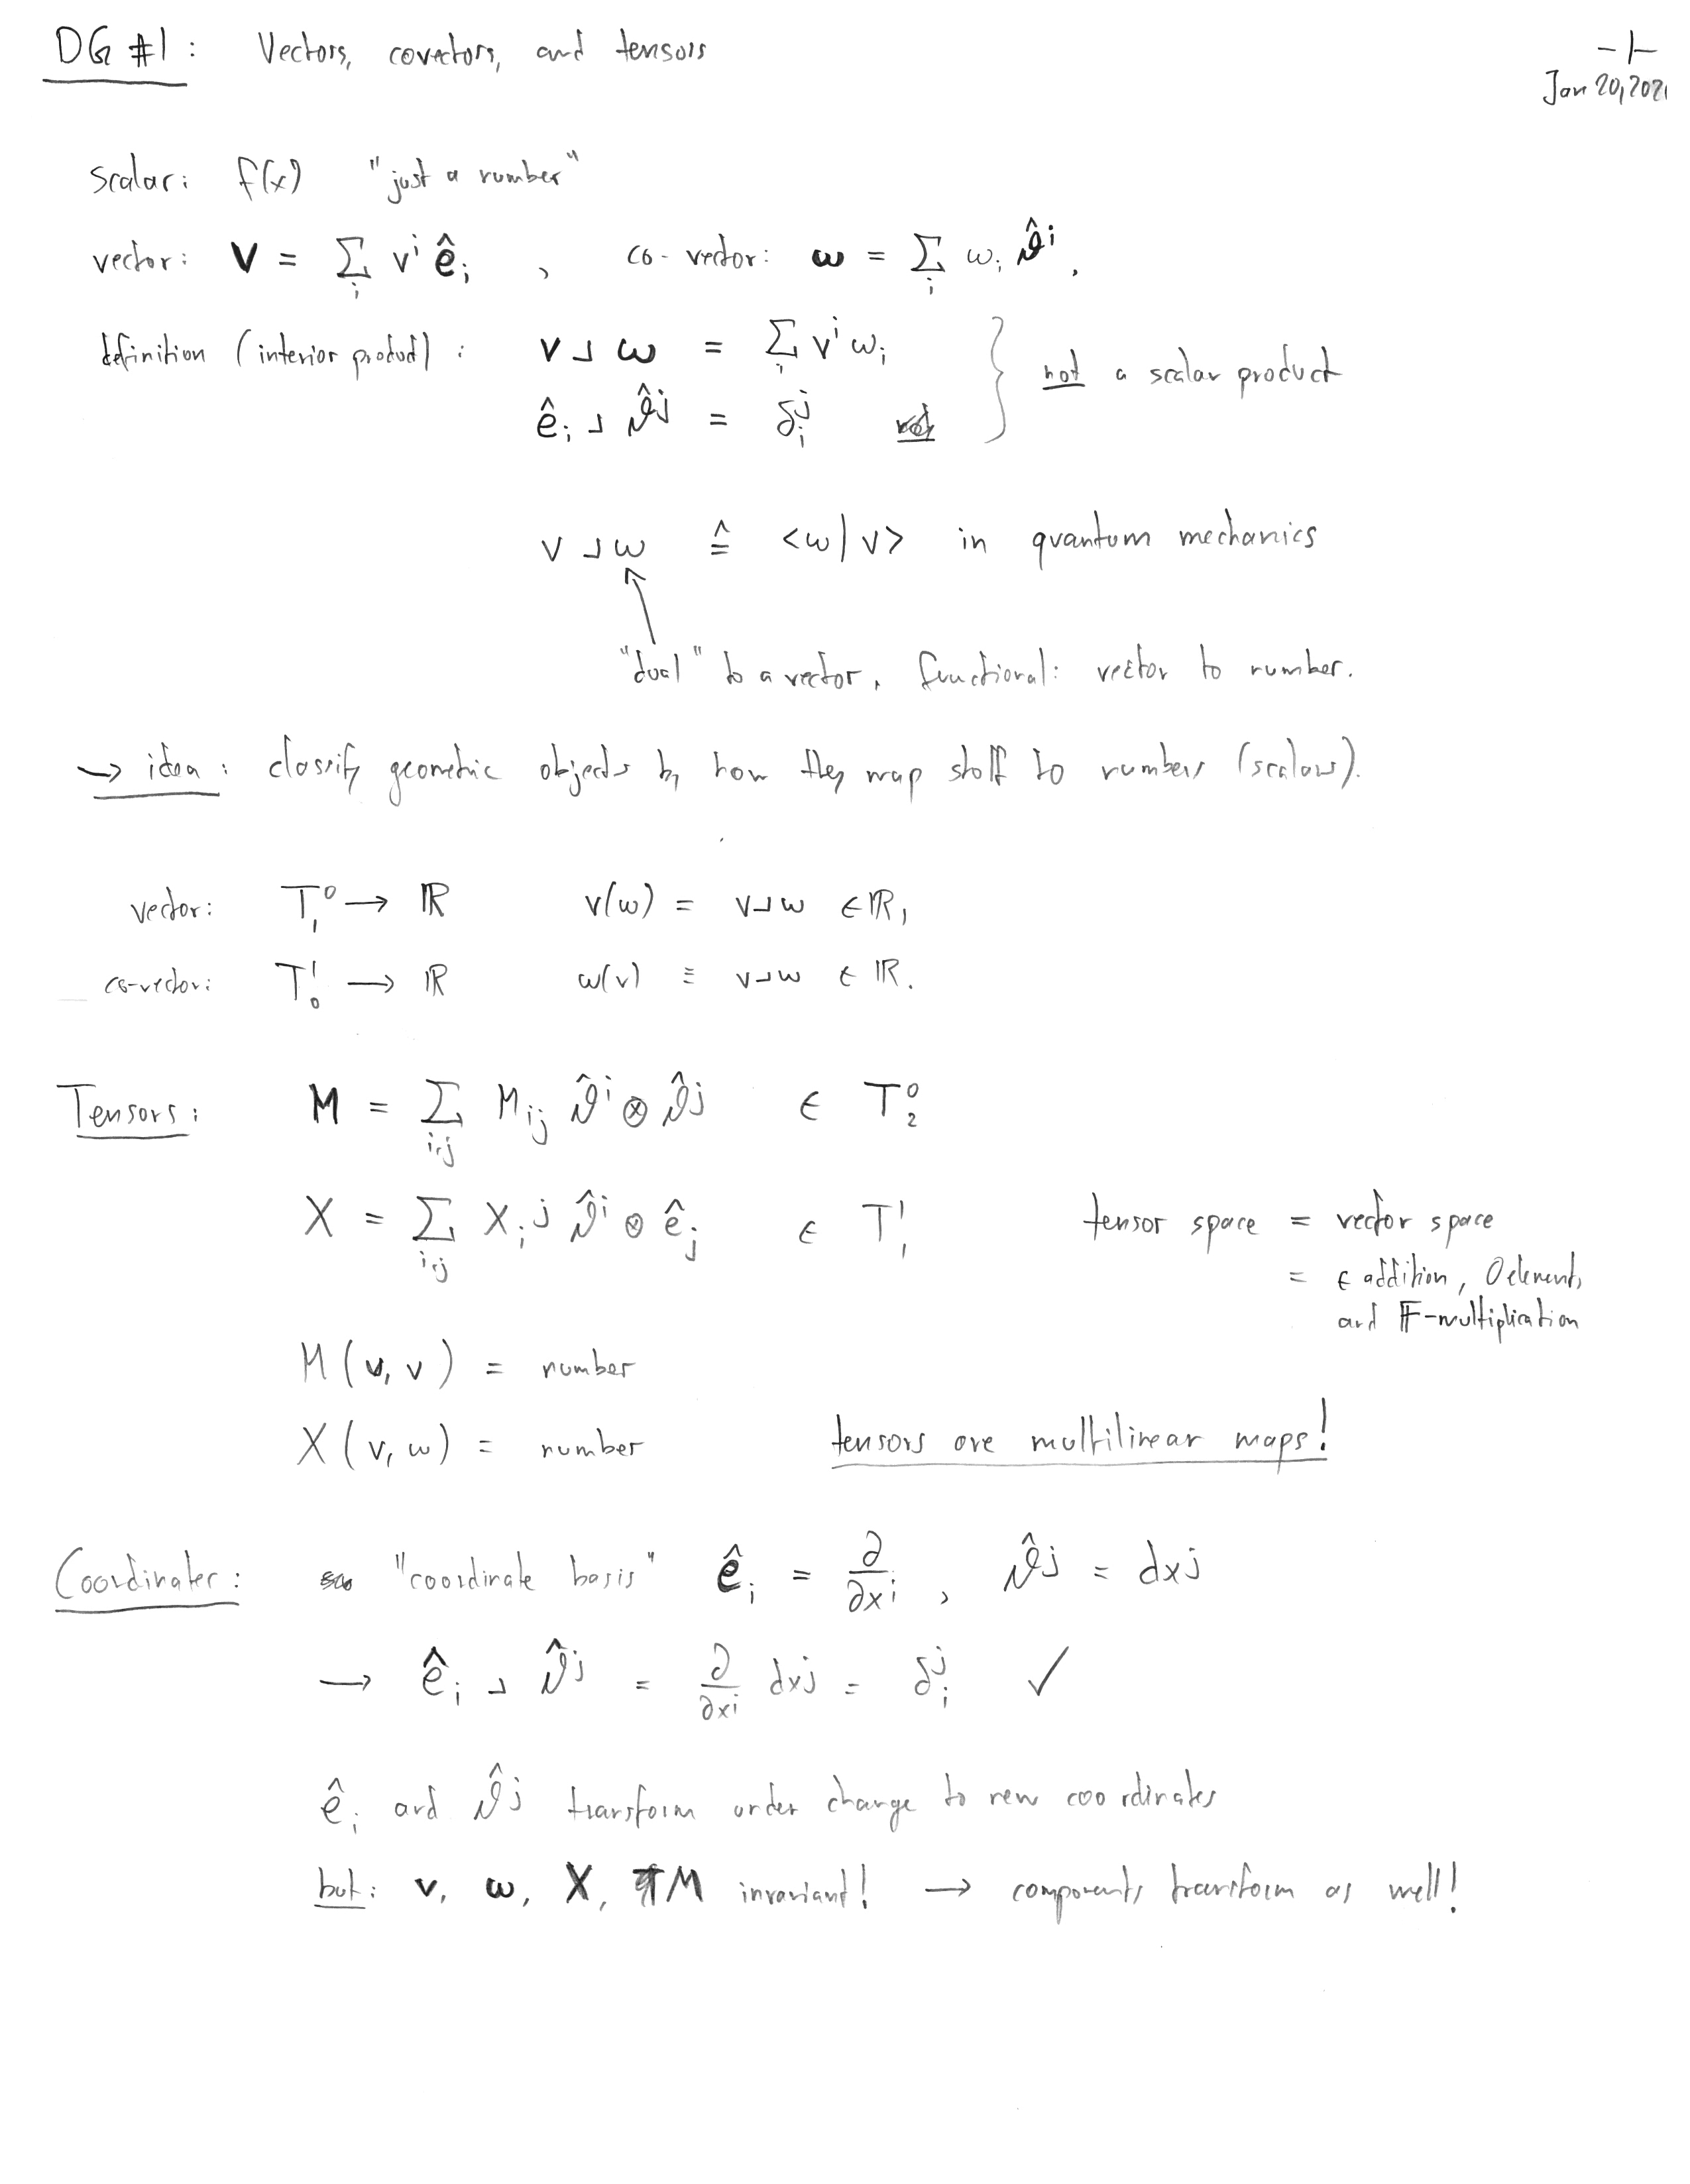 DG #1: Vectors, covectors, and tensors
-1-
Jan 20, 2021
scalar: f(x) "just a number"
vector: v = ∑_i v^i ê_i , co-vector: ω = ∑_i ω_i ϑ̂^i.
definition (interior product): v ⌟ ω = ∑_i v^i ω_i
ê_i ⌟ ϑ̂^j = δ_i^j
not a scalar product
v ⌟ ω ≙ <ω|v> in quantum mechanics
"dual" to a vector, functional: vector to number.
→ idea: classify geometric objects by how they map stuff to numbers (scalars).
vector: T^0_1 → ℝ v(ω) = v⌟ω ∈ ℝ,
co-vector: T^1_0 → ℝ ω(v) ≡ v⌟ω ∈ ℝ.
Tensors: M = ∑_{i,j} M_{ij} ϑ̂^i ⊗ ϑ̂^j ∈ T^0_2
X = ∑_{i,j} X_i^j ϑ̂^i ⊗ ê_j ∈ T^1_1
tensor space = vector space
= ∈ addition, 0 element,
and 𝔽-multiplication
M(v, v) = number
X(v, ω) = number
tensors are multilinear maps!
Coordinates: "coordinate basis" ê_i = ∂/∂x^i , ϑ̂^j = dx^j
→ ê_i ⌟ ϑ̂^j = ∂/∂x^i dx^j = δ_i^j ✓
ê_i and ϑ̂^j transform under change to new coordinates
but: v, ω, X, M invariant! → components transform as well!